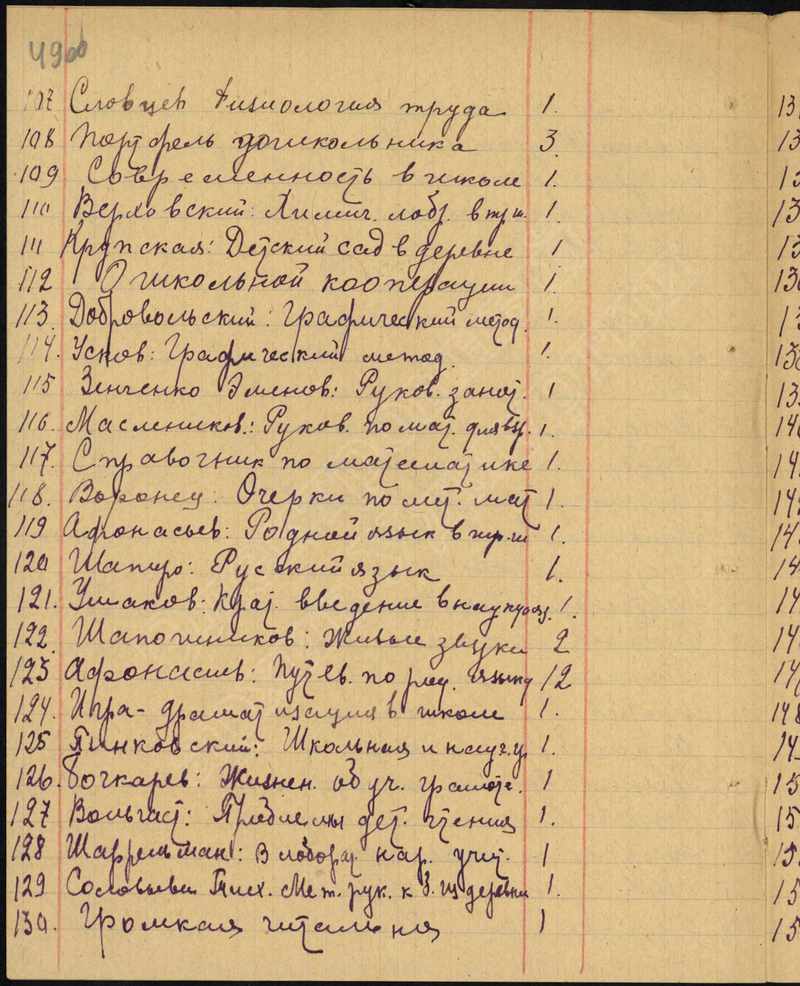 490
107 Словцев Физиология труда 1.
108 Портфель дошкольника 3.
109 Современность в школе 1.
110 Верховский: Химич. лобр. в тр. ш. 1.
111 Крупская: Детский сад в деревне 1
112 О школьной кооперации 1.
113. Добровольский: Графический метод. 1.
114. Усков: Графический метод. 1.
115 Зенченко Эменов: Руков. занят. 1
116. Маслеников.: Руков. по мат. для 1.
117. Справочник по математике 1.
118. Воронец: Очерки по мет. мат 1.
119 Афонасьев: Родной язык в тр. ш 1.
120 Шапиро: Русский язык 1.
121. Ушаков: Крат. введение в науку о яз. 1.
122. Шапошников: Живые звуки 2
123 Афонасьев: Путев. по род. языку 12
124. Игра-драматизация в школе 1.
125 Пинковский: Школьная и науч. 1.
126. Бочкарев: Жизнен. обуч. грамоте. 1
127 Вольгаст: Проблемы дет. чтения 1.
128 Шаррельман: В лоборат. нар. учит. 1
129 Соловьева Мет. рук. к в. из деревни 1.
130. Громкая читальня 1
13
13
13
13
13
13
13
13
13
14
14
14
14
14
14
14
14
148
14
15
15
15
15
15